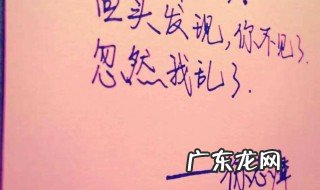 回头发现,你不见了.
忽然我乱了.
广东龙网